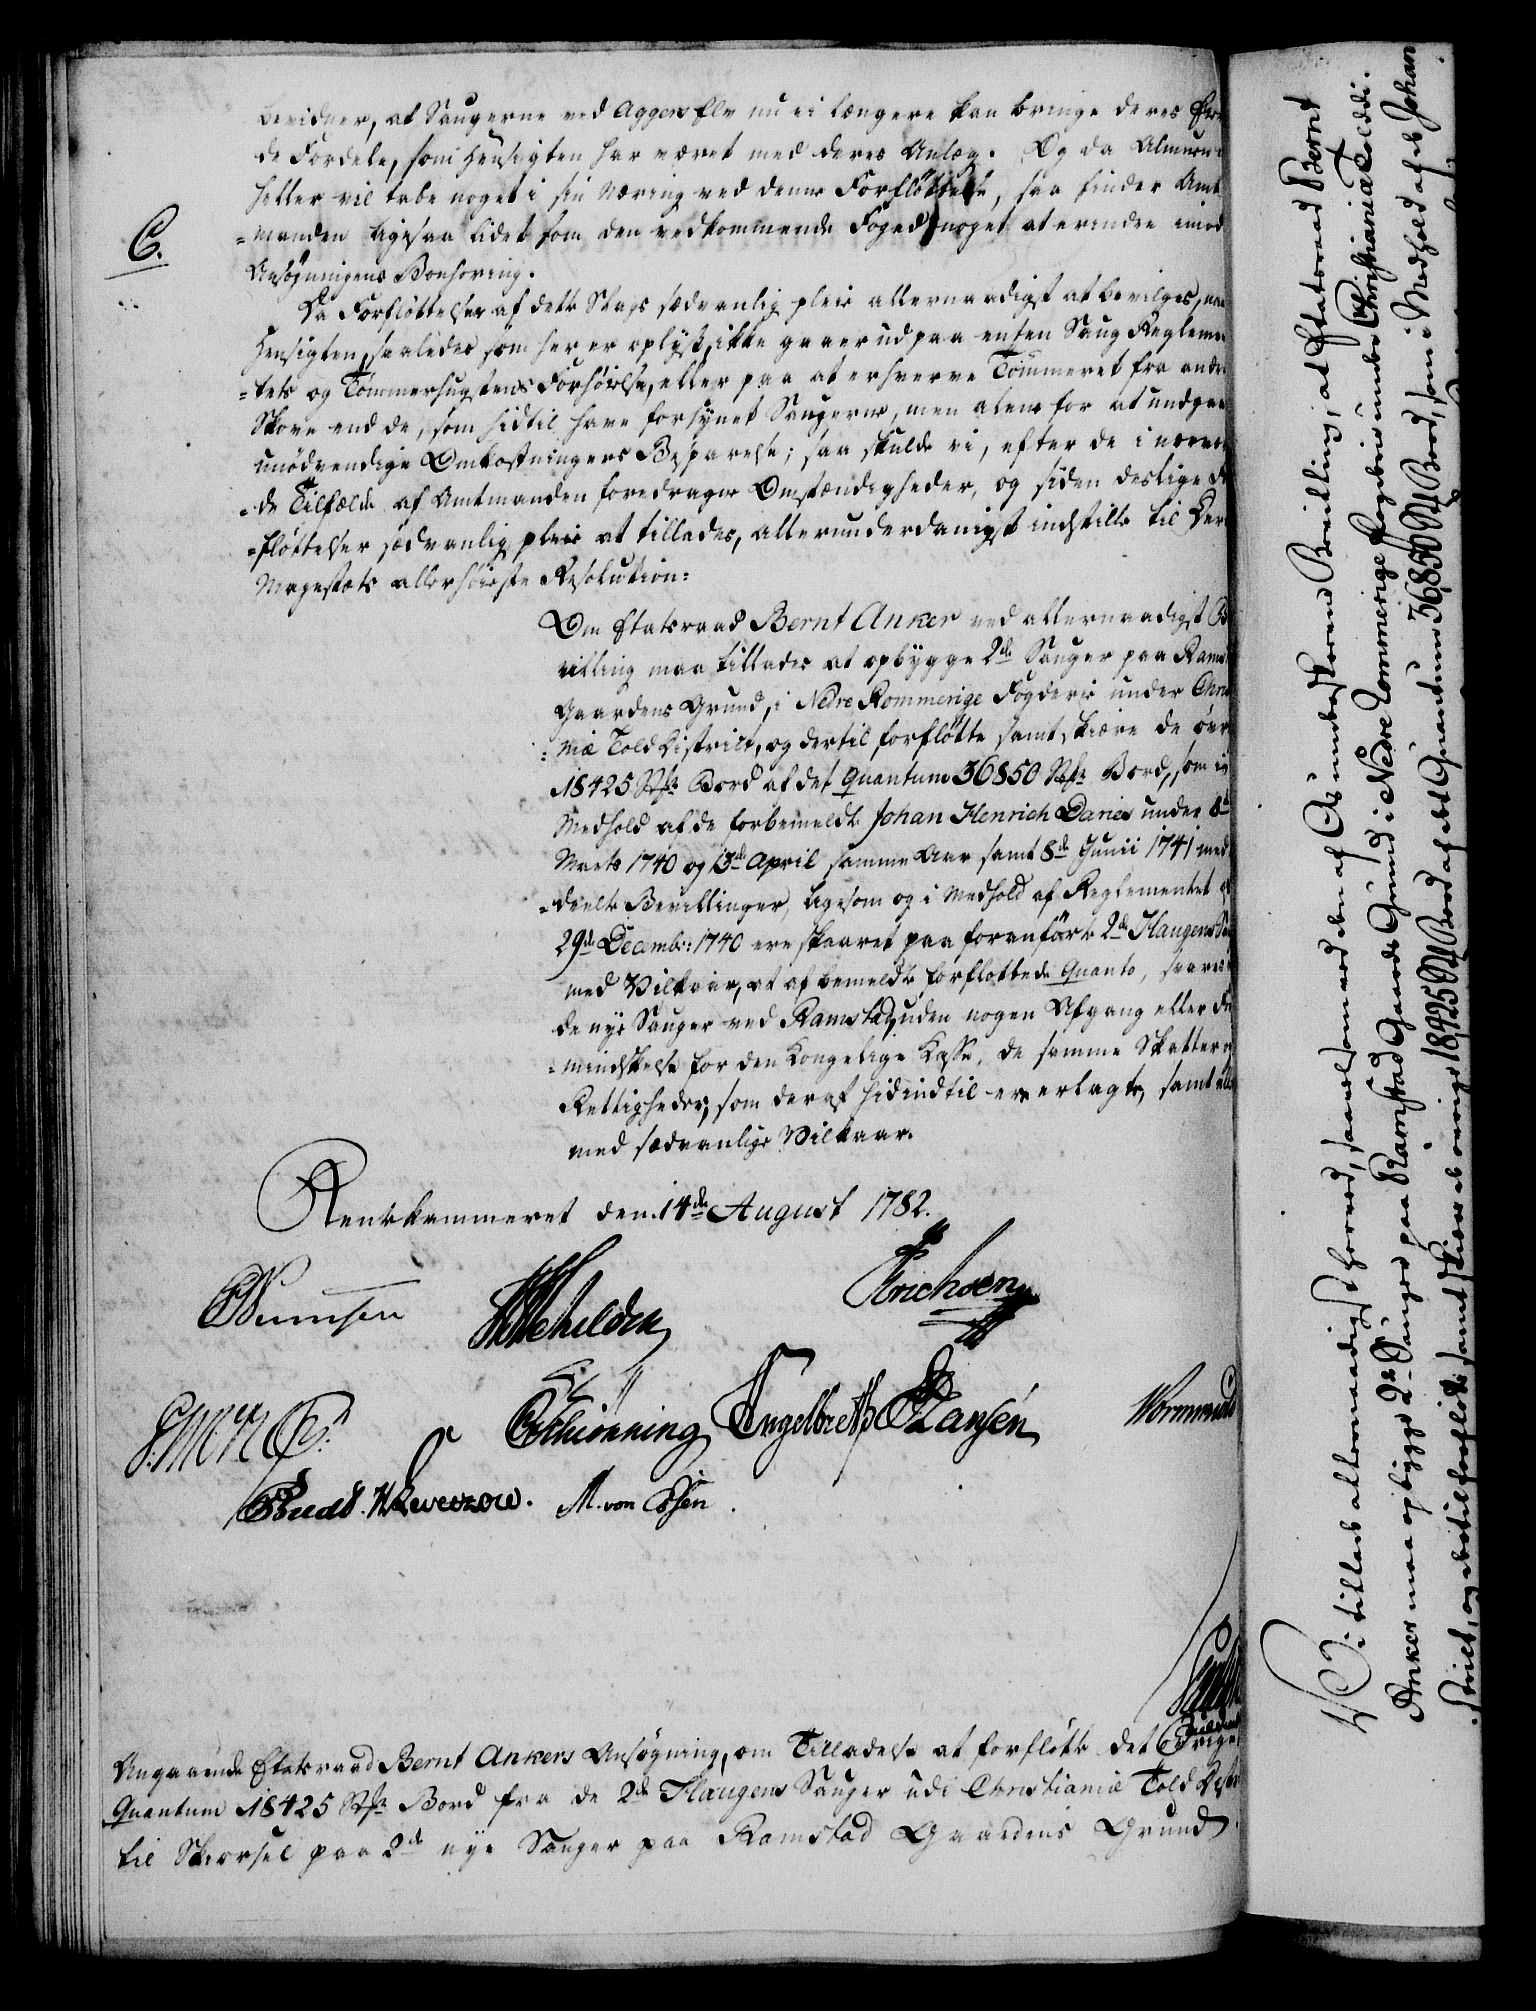 bevidner, at Saugerne ved Aggers Elv nu ei længere kan bringe deres
de Fordele, som Hensigten har været med deres Anlæg. Og da Almuen
heller vil tabe noget i sin Næring ved denne Forflöttelse, saa finder Amt
=manden ligesaa lidet som den vedkommende Foged noget at erindre imod
Ansøgningens Bønhøring.
6.
Da Forflöttelser af dette Slags sædvanlig pleie allernaadigst at bevilges, naar
Hensigten, saaledes som her er oplyst, ikke gaaer ud paa enten Saug Reglemen
=tets og Tømmerhugstens Forhöielse, eller paa at erhverve Tömmeret fra andre
Skove end de, som hidtil have forsynet Saugerne, men alene for at undgaae
unödvendige Omkostningers Besparelse; saa skulde vi, efter de i nærværen
=de Tilfælde af Amtmanden foredragne Omstændigheder, og siden deslige For
=flöttelser sædvanlig pleie at tillades, allerunderdanigst indstille til Deres
Majestæts allerhöieste Resolution:
Om Etatsraad Bernt Anker ved allernaadigst Be
villing maa tillades at opbygge 2de Sauger paa Ramstad
Gaardens Grund, i Nedre Rommerige Fogderie under Christia
=niæ Told District, og dertil forflötte samt skiære de övrige
18425 Stkr Bord af det Quantum 36850 Stkr Bord, som i
Medhold af de forbemeldte Johan Henrich Daries under 8de
Marts 1740 og 13de April samme Aar samt 8de Junii 1741 med
=deelte Bevillinger, ligesom og i Medhold af Reglementet af
29de Decembr: 1740 ere skaaret paa foranförte 2de Haugens Sauger
med Vilkaar, at af bemeldte forflottede Quanto, svares
de nye Sauger ved Ramstad, uden nogen Afgang eller For
=mindskelse for den Kongelige Kasse, de samme Skatter og
Rettigheder, som deraf hidindtil ere erlagte, samt
med sædvanlige Vilkaar.
Rentekammeret den 14de August 1782.
Schilden
Erichsen
Schiönning Engelbreth Hansen Wormund
Levetzow. M. von Essen
Angaaende Etatsraad Bernt Ankers Ansøgning, om Tilladelse at forflötte det övrige
Quantum 18425 Stkr Bord fra de 2de Haugens Sauger udi Christianiæ Told District
til Skiørsel paa 2de nye Sauger paa Ramstad Gaardens Grund.
Vi tillade allernaadigst herved, saavelsom ved den af Os underskrevne Bevilling, at Etatsraad Bernt
Anker maa opbygge 2de Sauger paa Ramstad Gaards Grund i Nedre Rommerige Fogderie under Christianiæ Told Di-
strict, og dertil forflötte samt skiære de övrige 18425 Stk Bord af det Quantum 36850 Stk Bord, som i Medhold af de Johan